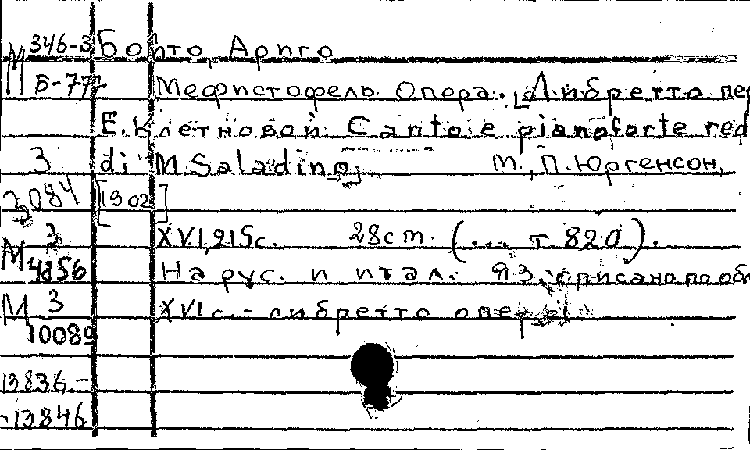 М 346-3 Бойто, Арриго
Б-777 Мефистофель. Опера. [Либретто пер
Е. Клетновой. Canto e pianoforte red
3 di M. Saladino, М., П. Юргенсон,
3084 [1902]
М 3 XVI, 215с. 28cm. (... т. 820).
4856 На рус. и итал. яз. описано по обл
М 3 XVIс. - либретто оперы
10089
13836.-
-13846